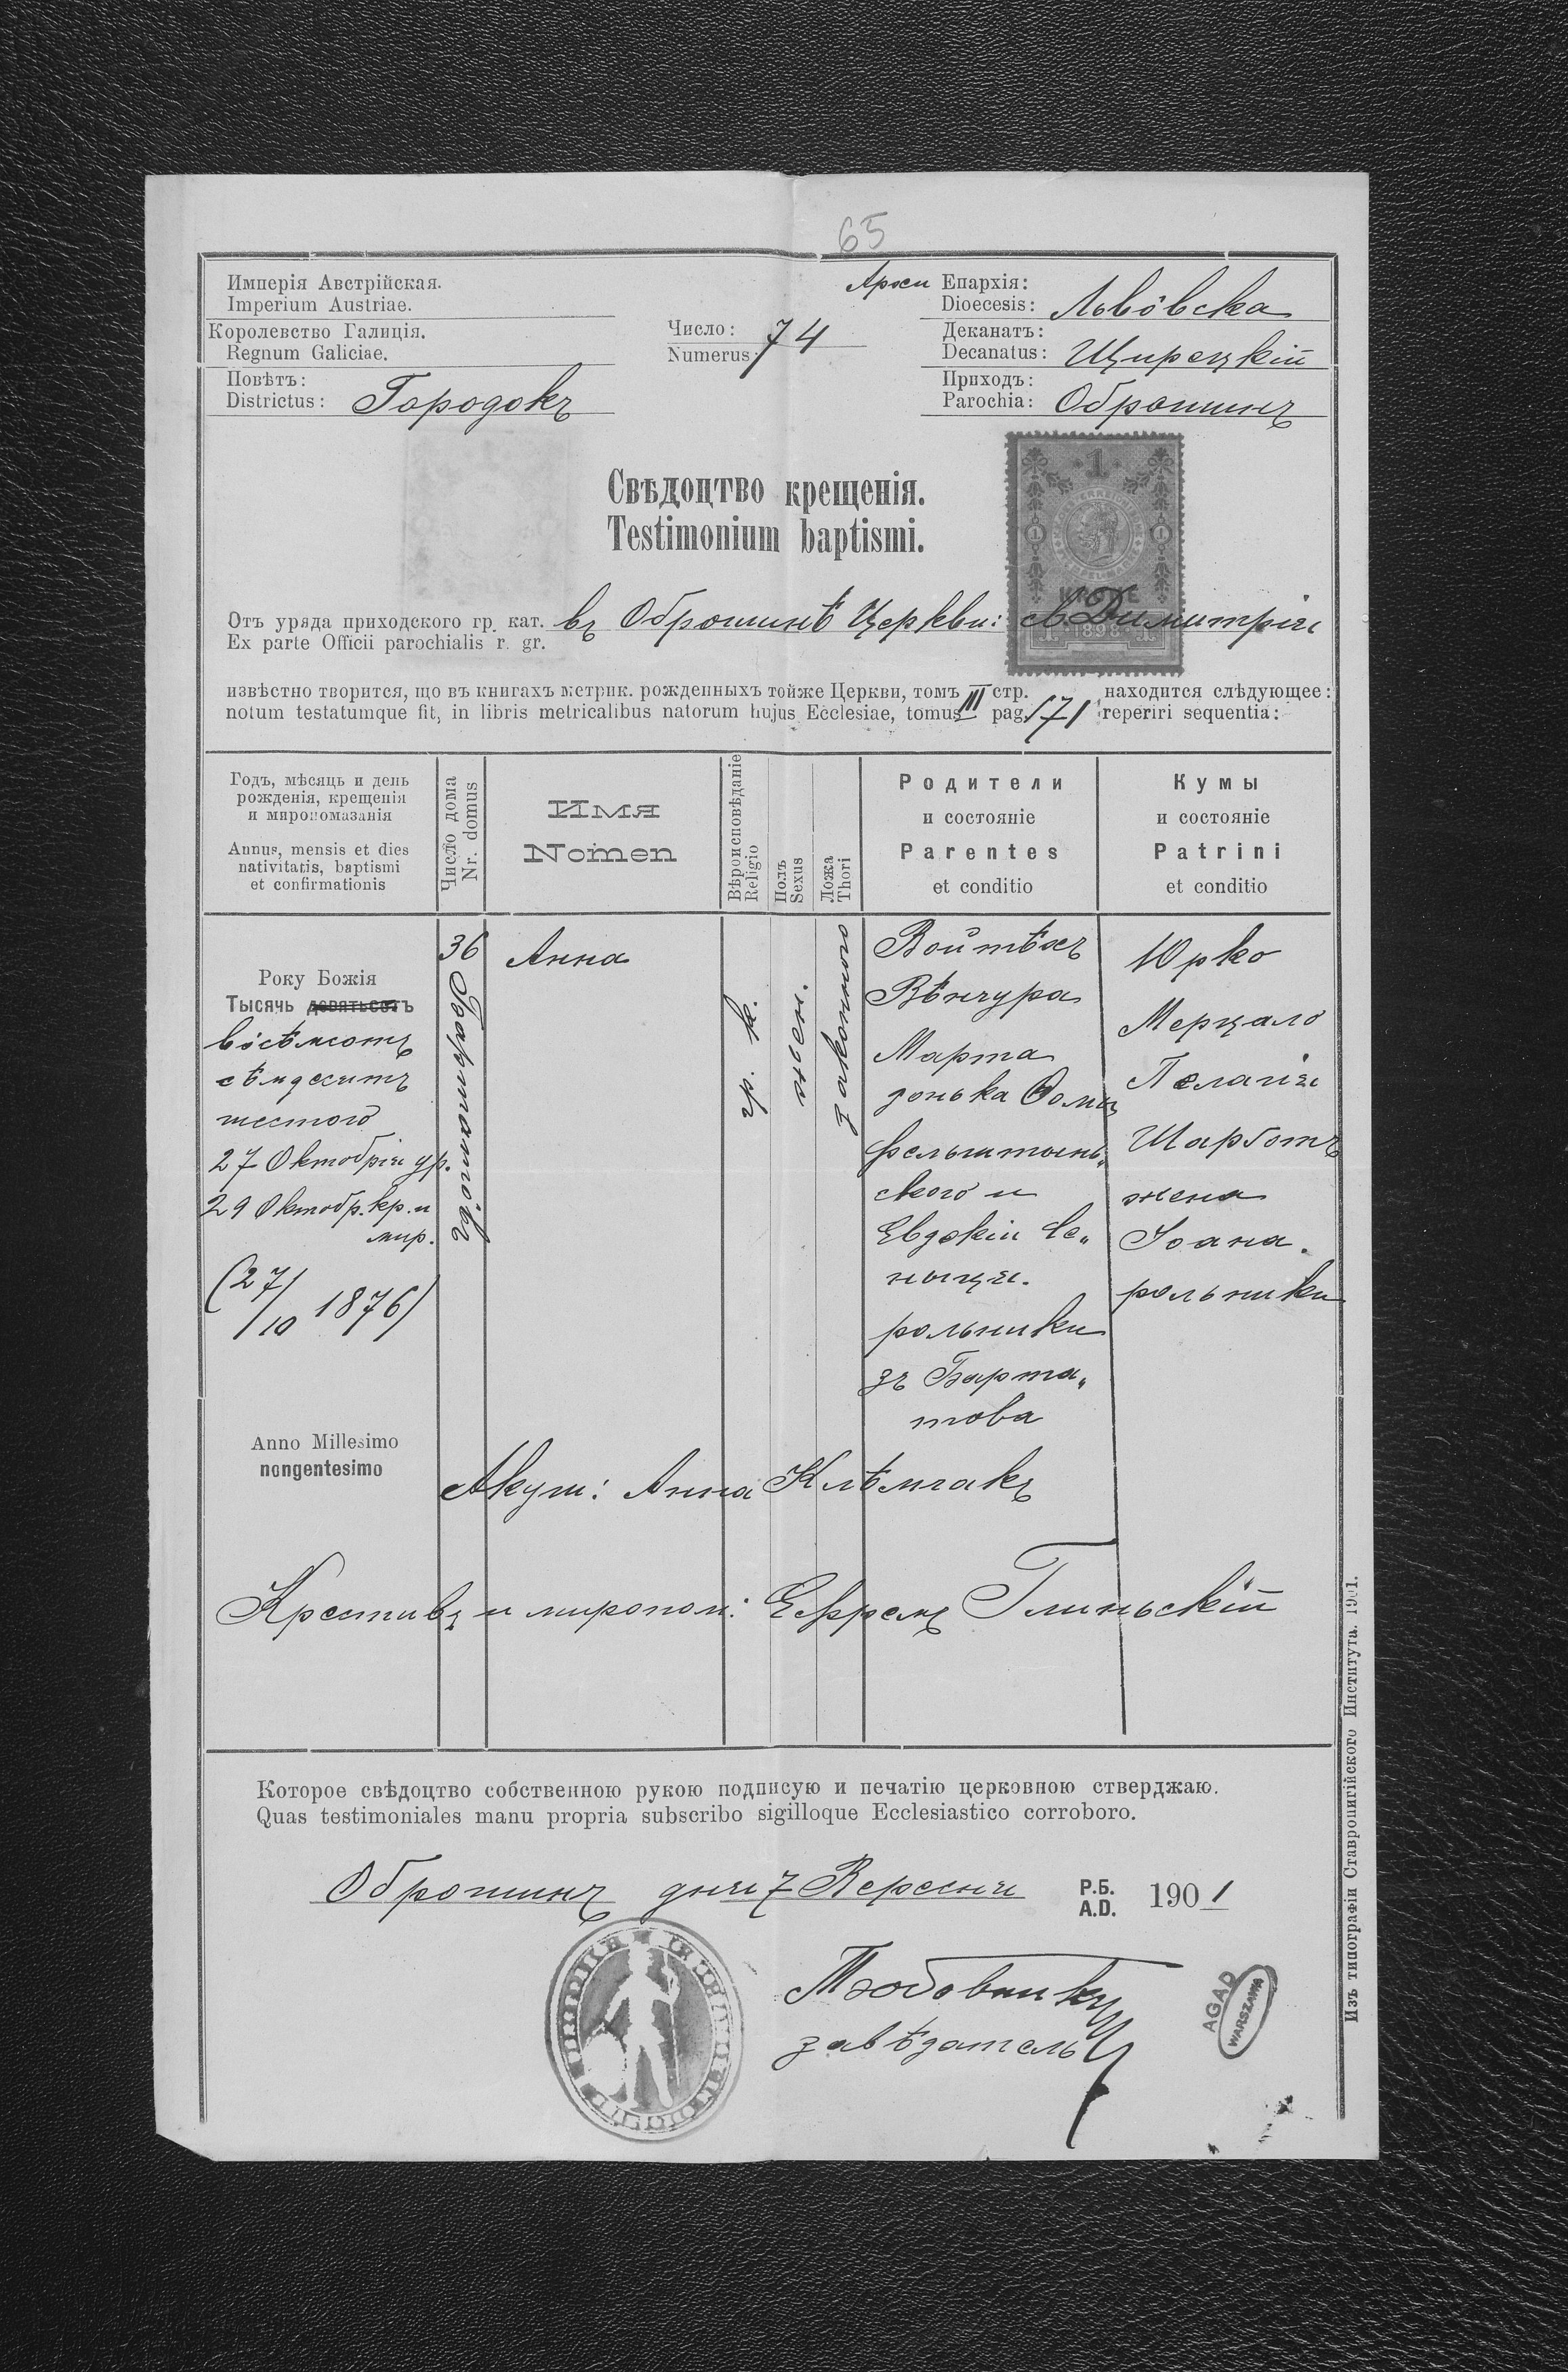 65
Имперія Австрійская.
Imperium Austriae.
Королевство Галиція.
Regnum Galiciae.
Повѣтъ:
Districtus: Городокъ
Число:
Numerus 74
Архи Епархія:
Dioecesis: Львôвска
Деканатъ:
Decanatus: Щирецкій
Приходъ:
Parochia: Оброшинъ
Свѣдоцтво крещенія.
Testimonium baptismi.
1
1 1
KRONE
1 1898 1
Отъ уряда приходского гр. кат. въ Оброшинѣ Церкви: св. Димитрія
Ex parte Officii parochialis r. gr.
извѣстно творится, що въ книгахъ метрик. рожденныхъ тойже Церкви, томъ III стр. 171 находится слѣдующее:
notum testatumque fit, in libris metricalibus natorum hujus Ecclesiae, tomus pag. reperiri sequentia:
Годъ, мѣсяць и день
рожденія, крещенія
и миропомазанія
Annus, mensis et dies
nativitatis, baptismi
et confirmationis
Число дома
Nr. domus
Имя
Nomen
Вѣроисповѣданіе
Religio
Полъ
Sexus
Ложа
Thori
Родители
и состояніе
Parentes
et conditio
Кумы
и состояніе
Patrini
et conditio
Року Божія
Тысячь девятьсотъ
вôсѣмсотъ
сѣмдесятъ
шестого
27 Октобрія ур.
29 Октобр. кр. и
мир.
(27/10 1876)
Anno Millesimo
nongentesimo
36
Бартатôвъ
Анна
гр. к.
жен.
законного
Войтѣхъ
Вѣнчура
Марта
донька Ѳомы
Фельштынь„
ского и
Евдокіи Се„
ницѣ.
рольники
зъ Барта„
това
Юрко
Мерцало
Пелагія
Шарботъ
жена
Іоана.
рольники
Акуш: Анна Клѣмчакъ
Крестивъ и миропом: Ефремъ Глинскій
Которое свѣдоцтво собственною рукою подписую и печатію церковною стверджаю.
Quas testimoniales manu propria subscribo sigilloque Ecclesiastico corroboro.
Оброшинъ дня 7 Вересня Р.Б. 1901
A.D.
завѣдатель
AGAD
WARSZAWA
Изъ типографіи Ставропигійского Института. 1901.